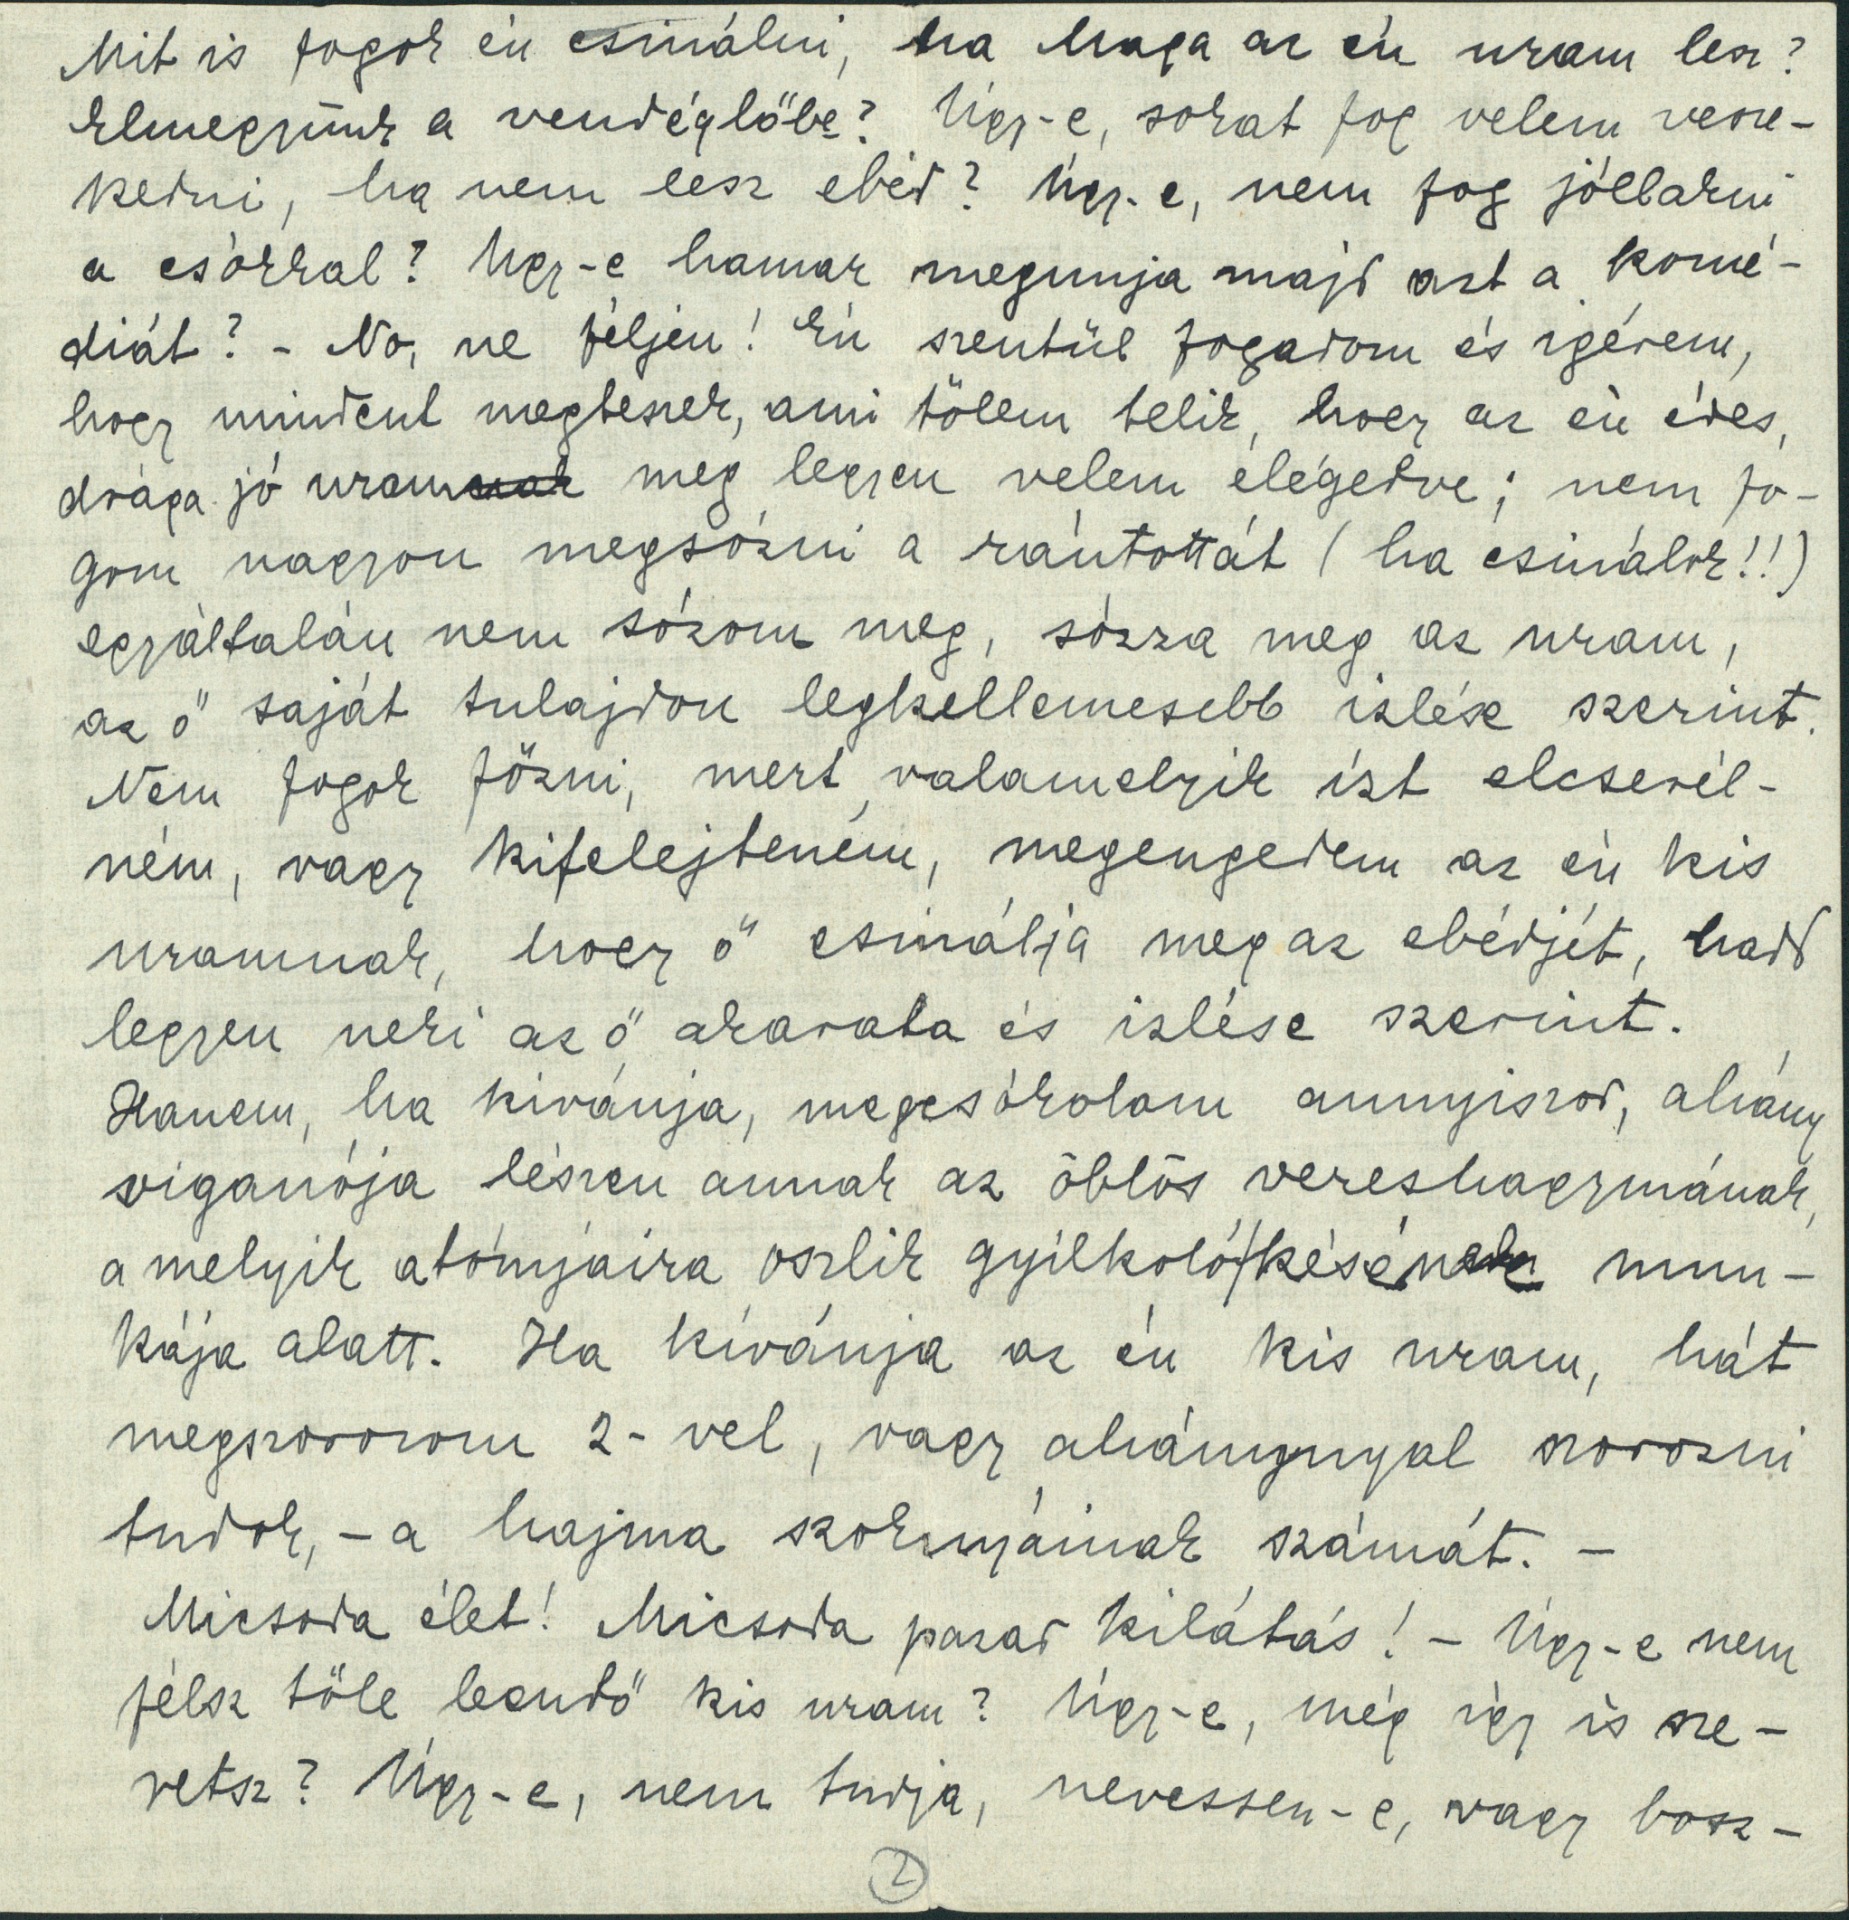 Mit is fogok én csinálni, ha maga az én uram lesz?
Elmegyünk a vendéglőbe? Úgy-e, sokat fog velem vesze-
kedni, ha nem lesz ebéd? Úgy-e, nem fog jóllakni
a csókkal? Úgy-e hamar megunja majd azt a komé-
diát? - No, ne féljen! Én szentül fogadom és igérem,
hogy mindent megteszek, ami tőlem telik, hogy az én édes,
drága jó uramnak meg legyen velem elégedve; nem fo-
gom nagyon megsózni a rántottát (ha csinálok!!)
egyáltalán nem sózom meg, sózza meg az uram,
az ő saját tulajdon legkellemesebb izlése szerint.
Nem fogok főzni, mert valamelyik ízt elcserél-
ném, vagy kifelejteném, megengedem az én kis
uramnak, hogy ő csinálja meg az ebédjét, hadd
legyen neki az ő akarata és izlése szerint.
Hanem, ha kivánja, megcsókolom annyiszor, ahány
viganója lészen annak az öblös vereshagymának,
amelyik atómjaira oszlik gyilkoló késének mun-
kája alatt. Ha kívánja az én kis uram, hát
megszorozom 2-vel, vagy ahánynyal szorozni
tudok, - a hajma szoknyáinak számát. -
Micsoda élet! Micsoda pazar kilátás! - Úgy-e nem
félsz tőle leendő kis uram? Úgy-e, még igy is sze-
retsz? Úgy-e, nem tudja, nevessen-e, vagy bosz-
2